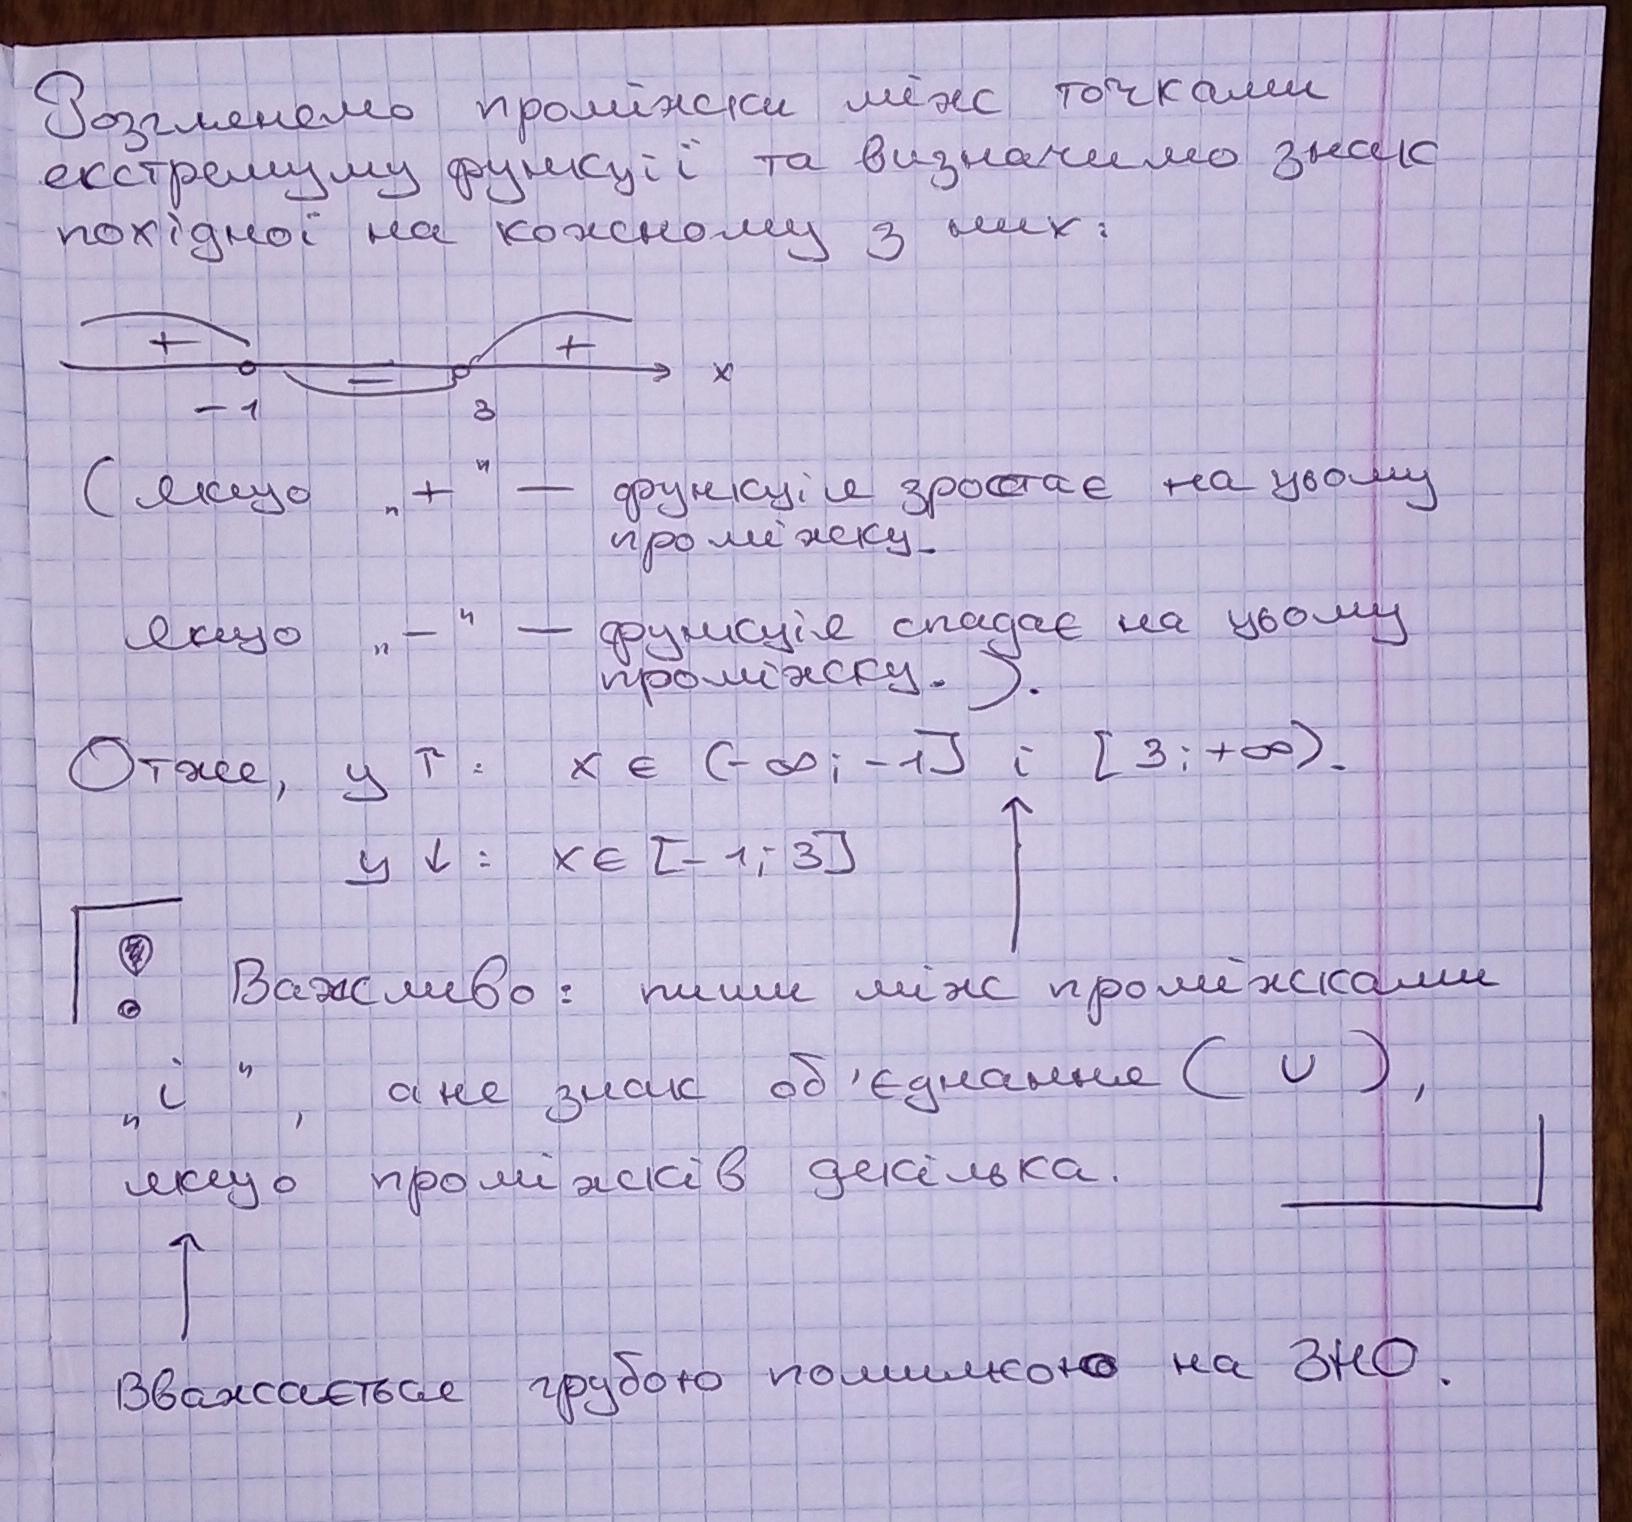 Розглянемо проміжки між точками
екстремуму функції та визначимо знак
похідної на кожному з них:
+ − + x
−1 3
(якщо „+" — функція зростає на цьому
проміжку.
якщо „−" — функція спадає на цьому
проміжку.).
Отже, y ↑: x ∈ (-∞; -1] і [3; +∞).
y ↓: x ∈ [-1; 3]
! Важливо: пиши між проміжками
„і", а не знак об'єднання (∪),
якщо проміжків декілька.
Вважається грубою помилкою на ЗНО.